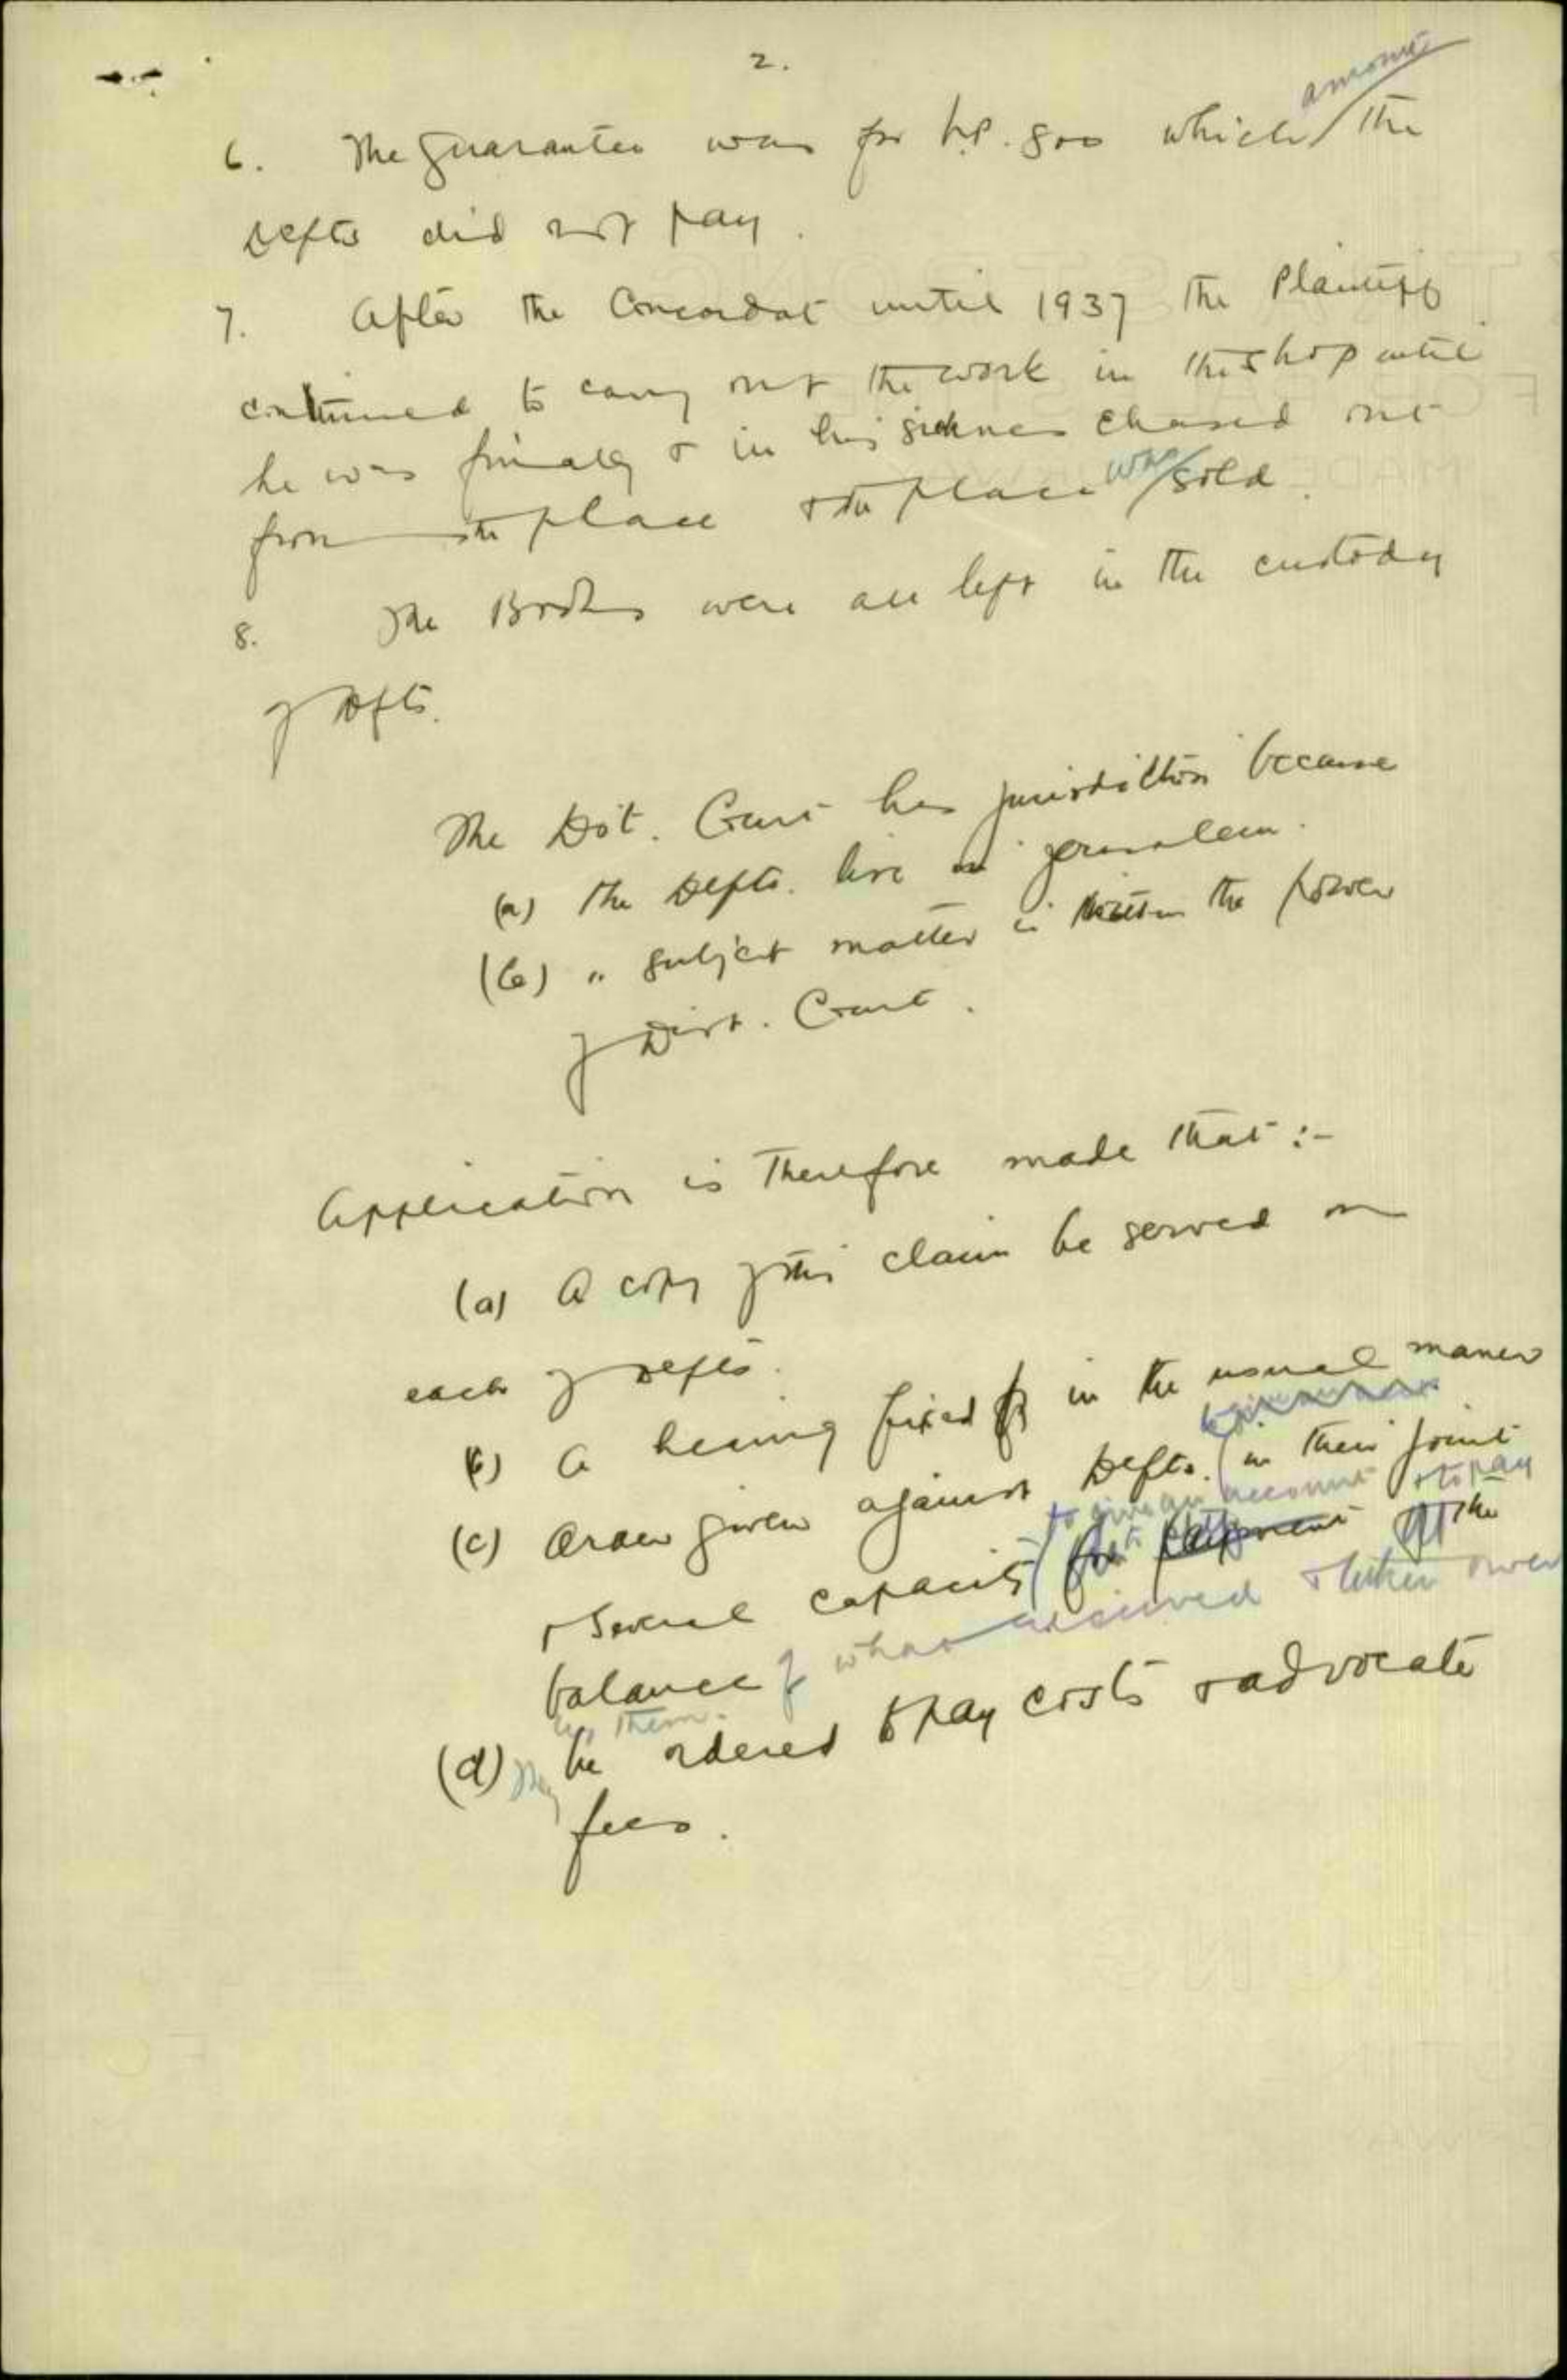 2.
6. The Guarantee was for LP. 800 which amount the
Defts did not pay.
7. After the Concordat until 1937 the Plaintiff
continued to carry out the work in the shop until
he was finally & in his sickness chased out
from the place & the place was sold.
8. The Books were all left in the custody
of Defts.
The Dist. Court has jurisdiction because
(a) The Defts. live in Jerusalem.
(b) " subject matter is within the power
of Dist. Court.
Application is therefore made that :-
(a) A copy of this claim be served on
each of Defts.
(b) A hearing fixed in the usual maner
(c) Order given against Defts. in their joint
to give an account & to pay
& several capacity for payment of the
balance of what received & taken over
by them.
(d) They be ordered to pay costs & advocate
fees.